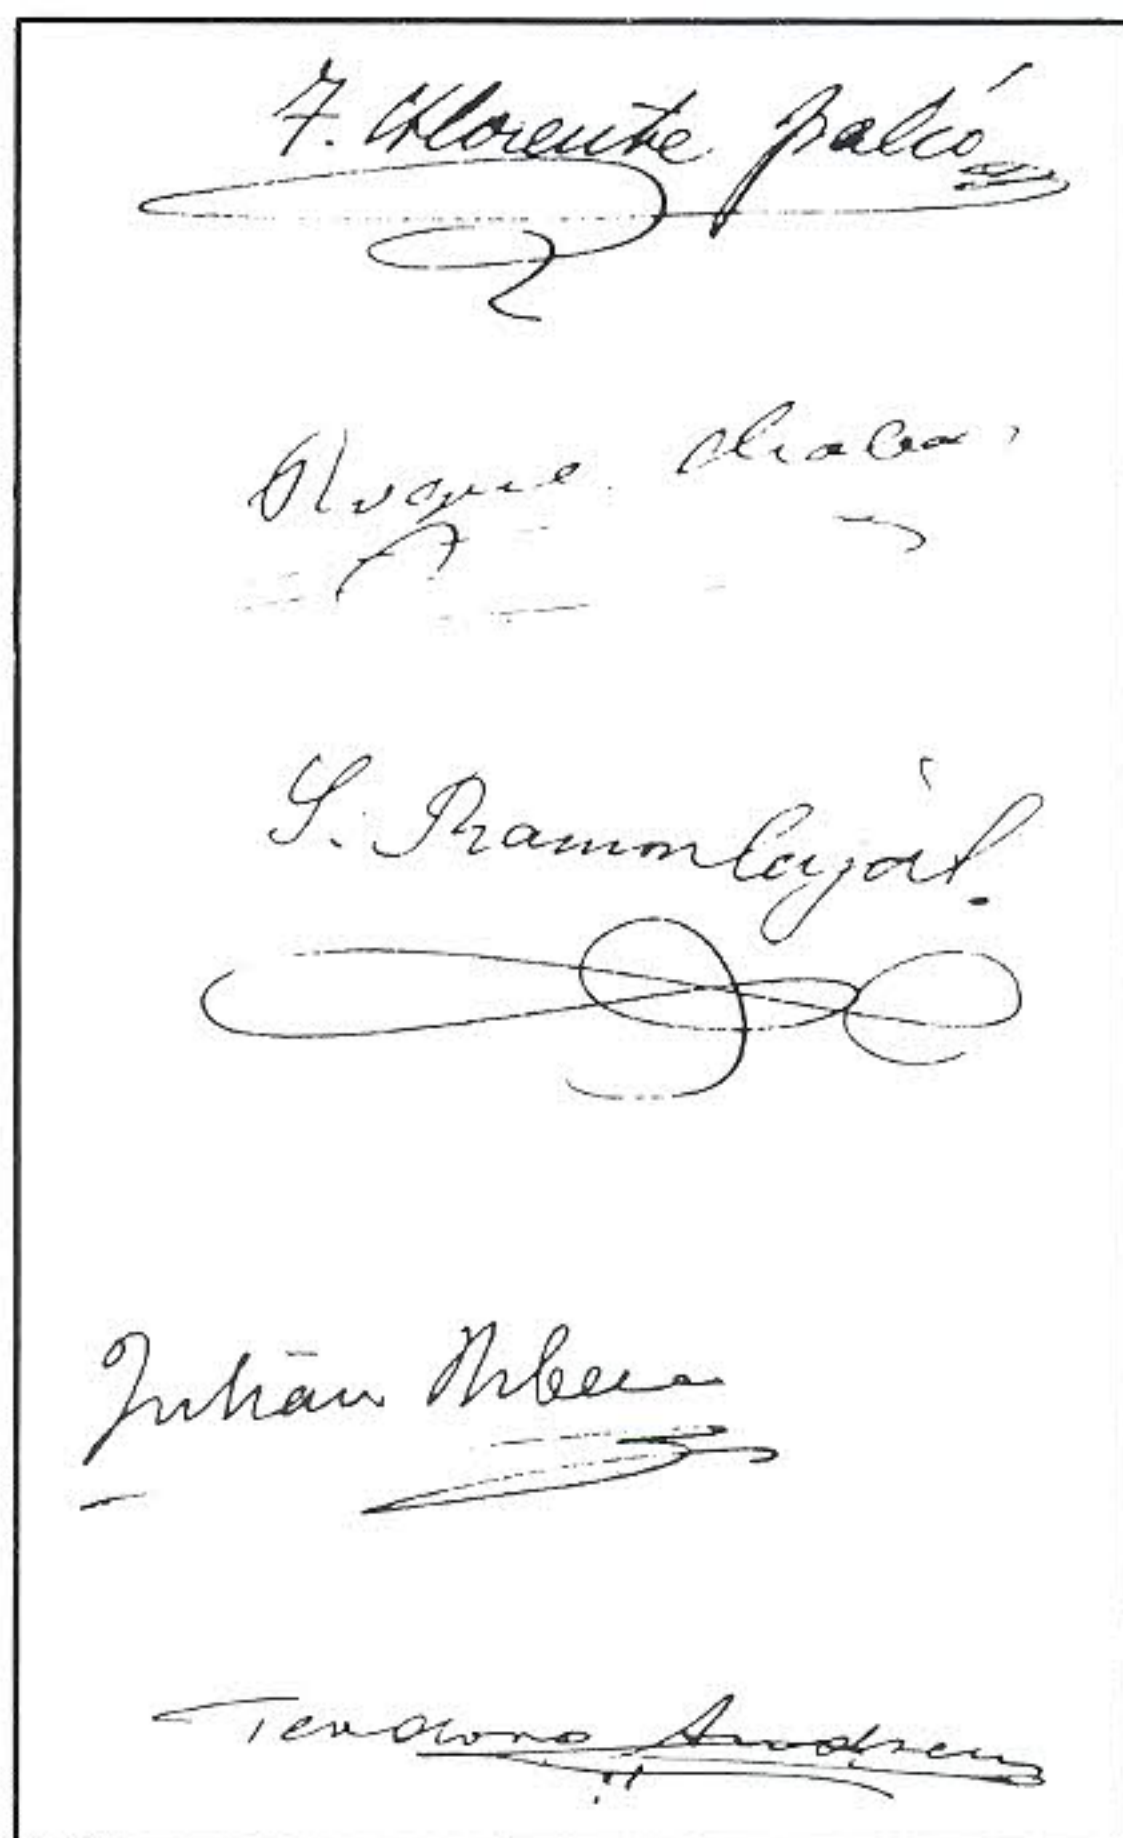 F. Llorente Falcó
Roque Chabas
S. Ramon Cajal.
Julián Ribera
Teodoro Andreu